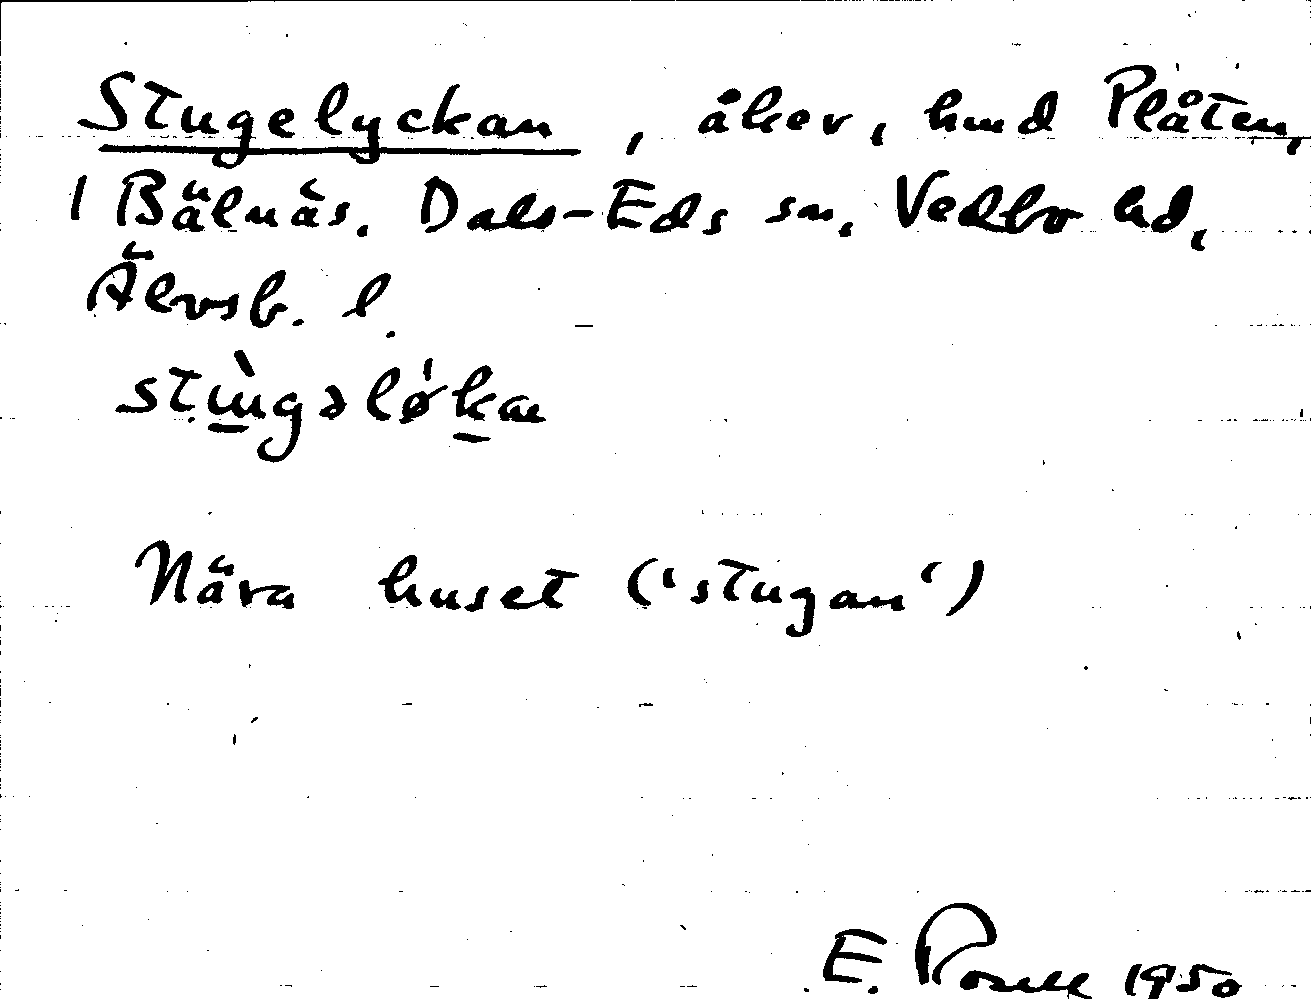 Stugelyckan, åker, hmd Plåten,
1 Bälnäs. Dals-Eds sn. Vedbo hd,
Älvsb. l.
stùgəlǿkan
Nära huset ('stugan')
E. Rosell 1950